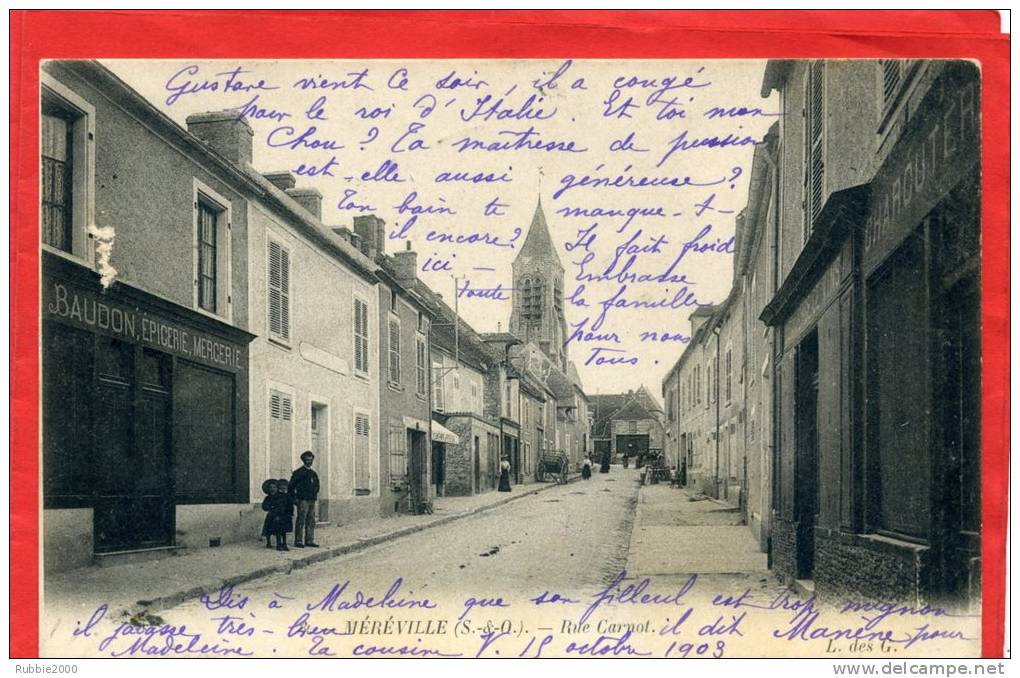 Gustave vient ce soir, il a congé
pour le roi d'Italie. Et toi mon
Chou? Ta maitresse de pension
est-elle aussi généreuse?
Ton bain te manque-t-
il encore? Il fait froid
ici - Embrasse
toute la famille
pour nous
tous.
BAUDON, ÉPICERIE, MERCERIE
CHARCUTERIE
Dis à Madeleine que son filleul est trop mignon
il jagasse très-bien il dit Manène pour
MÉRÉVILLE (S.-&-O.). - Rue Carnot.
Madeleine. Ta cousine V. 15 octobre 1903
L. des G.
Rubbie2000
www.delcampe.net